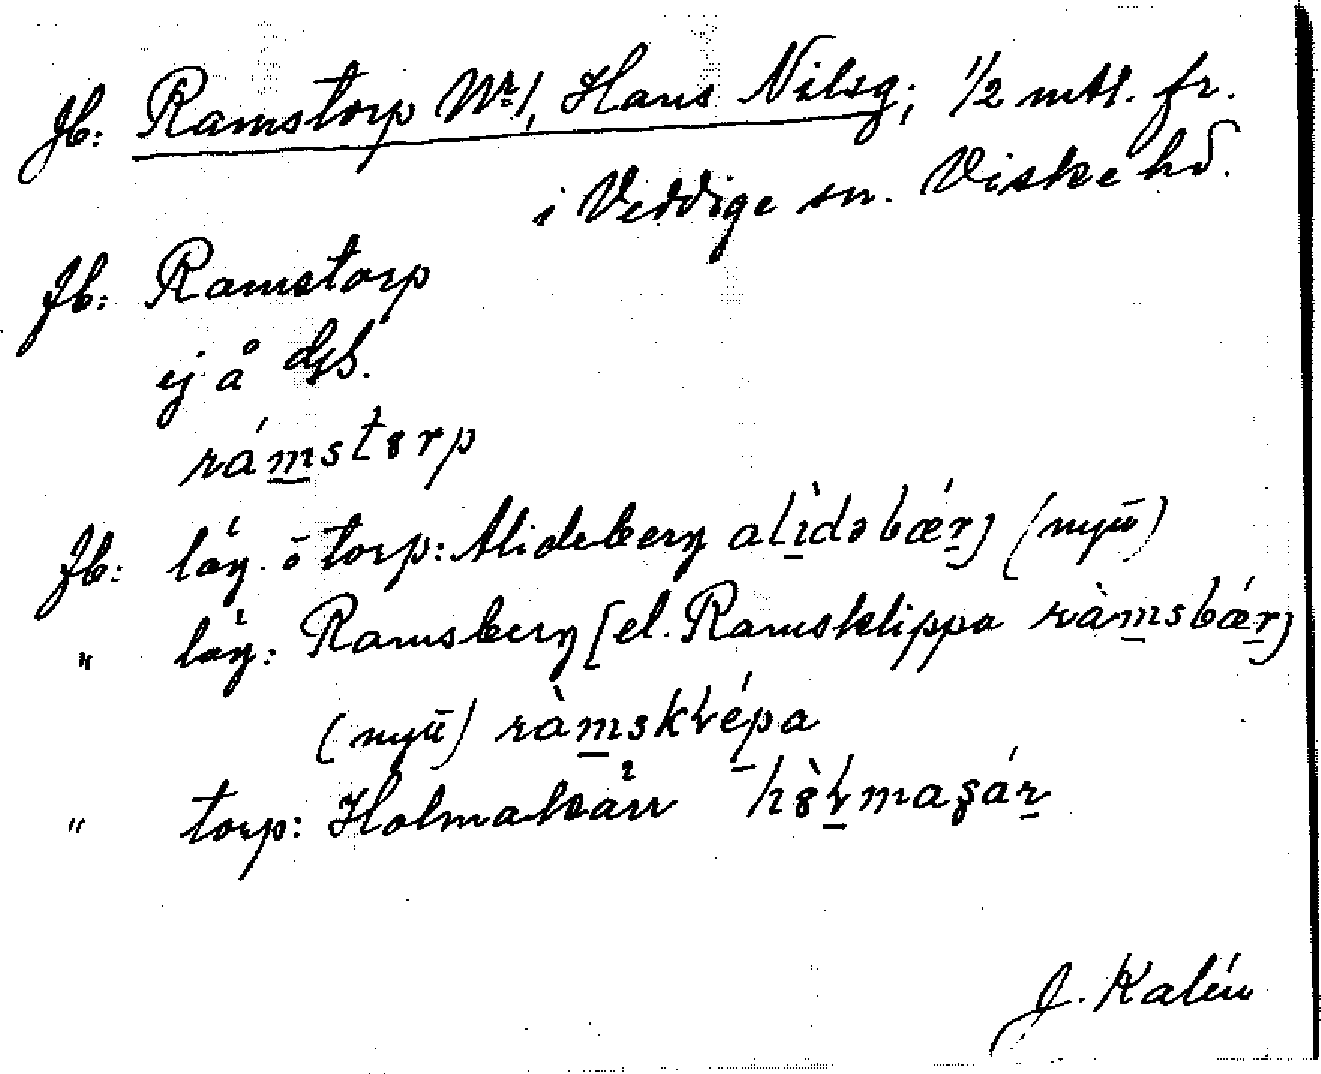 Jb: Ramstorp Nr 1, Hans Nilsg; 1/2 mtl. fr.
i Veddige sn. Viske hd.
Jb: Ramstorp
ej å
rámstɤrp
Jb: läg. o torp: Alideberg alìdəbǽrj (nyū)
" läg: Ramsberg [el. Ramsklippa ràmsbǽrj
(nyū) ràmsklépa
" torp: Holmakärr
J. Kalén